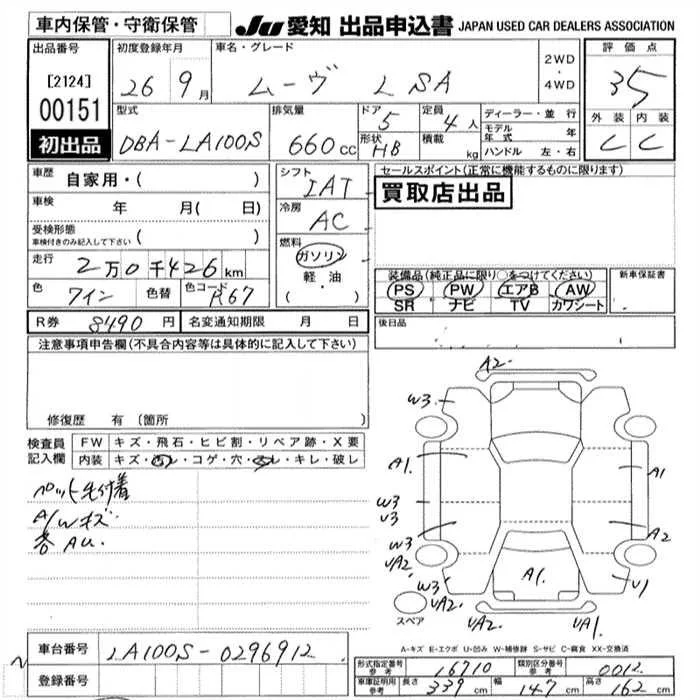 車内保管・守衛保管
JU 愛知 出品申込書 JAPAN USED CAR DEALERS ASSOCIATION
出品番号 初度登録年月 車名・グレード 2WD ・ 4WD 評価点
[2124] 00151 26 9月 ムーヴ L SA 3.5
初出品 型式 排気量 ドア 定員 ディーラー・並行 外装 内装
DBA-LA100S 660cc 5 4人 モデル年式 年 C C
形状 HB 積載 kg ハンドル 左・右
車歴 自家用・( ) シフト IAT セールスポイント(正常に機能するものに限ります)
車検 年 月(日) 冷房 AC 買取店出品
受検形態 車検付きのみ記入して下さい ( )
燃料 ガソリン 軽・油 ( )
走行 2万0千426km
装備品(純正品に限り○をつけてください) 新車保証書
色 ワイン 色替 色コード R67
PS PW エアB AW
SR ナビ TV カワシート
R券 8490円 名変通知期限 月 日 後日品
注意事項申告欄(不具合内容等は具体的に記入して下さい)
修復歴 有(箇所 )
検査員記入欄 FW キズ・飛石・ヒビ割・リペア跡・X要
内装 キズ・汚レ・コゲ・穴・スレ・キレ・破レ
A/Wキズ
各AU.
A2.
W3.
A1. A1
W3
U3
W3 A2
UA2.
W3 A1. U1
UA2. UA1
スペア
A-キズ E-エクボ U-凹み W-補修跡 S-サビ C-腐食 XX-交換済
車台番号 LA100S-0296912
登録番号
形式指定番号 参考 16710 類別区分番号 参考 0012
車庫証明用 参考 長さ 339cm 幅 147cm 高さ 162cm